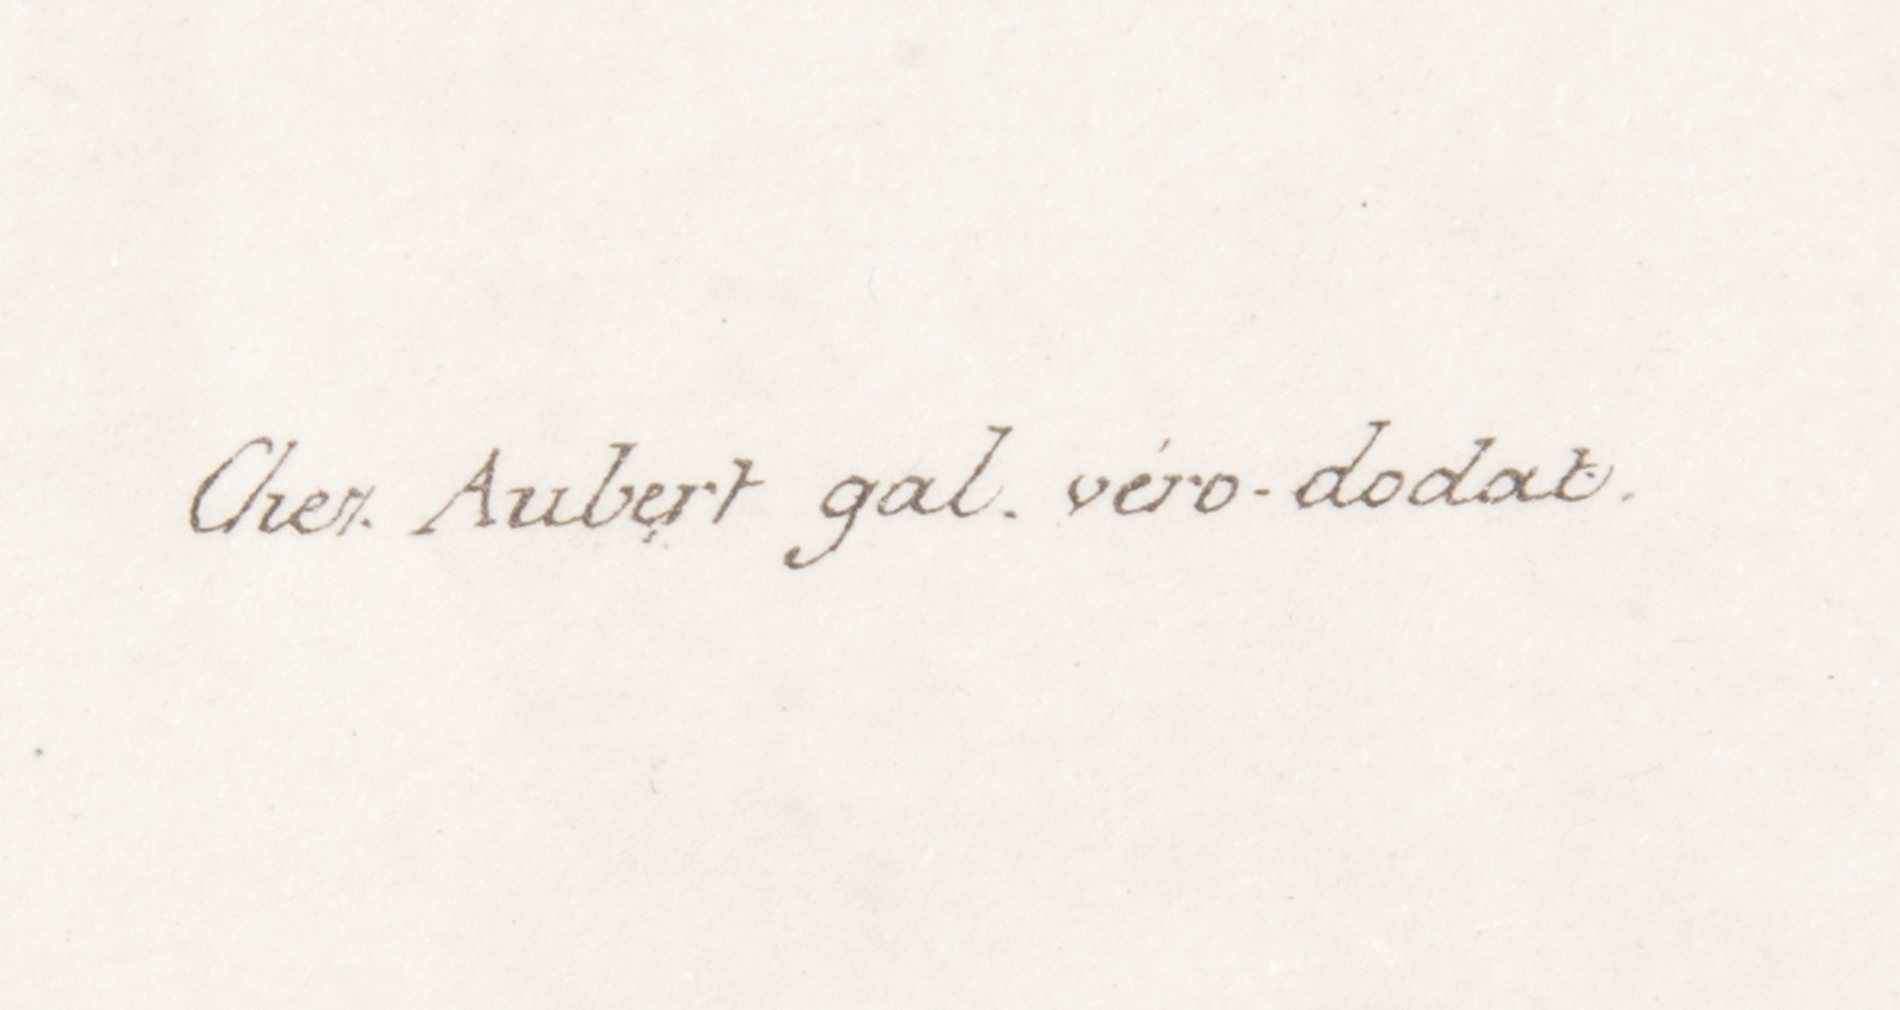 Chez Aubert gal. véro-dodat.